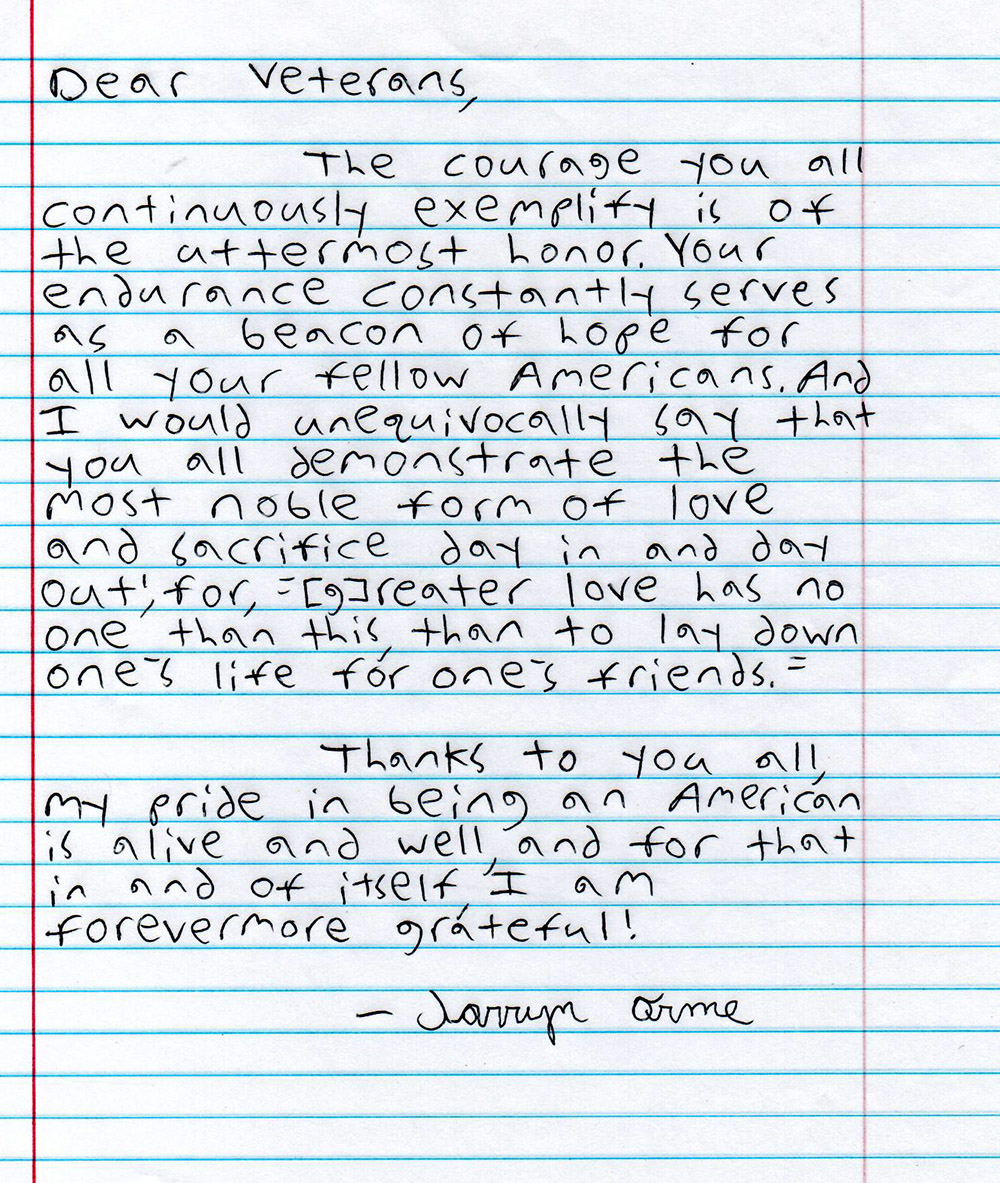 Dear Veterans,
The courage you all
continuously exemplify is of
the uttermost honor. Your
endurance constantly serves
as a beacon of hope for
all your fellow Americans. And
I would unequivocally say that
you all demonstrate the
most noble form of love
and sacrifice day in and day
out; for, "[g]reater love has no
one than this, than to lay down
one's life for one's friends."
Thanks to you all,
my pride in being an American
is alive and well, and for that
in and of itself, I am
forevermore grateful!
– Jarryn Orme